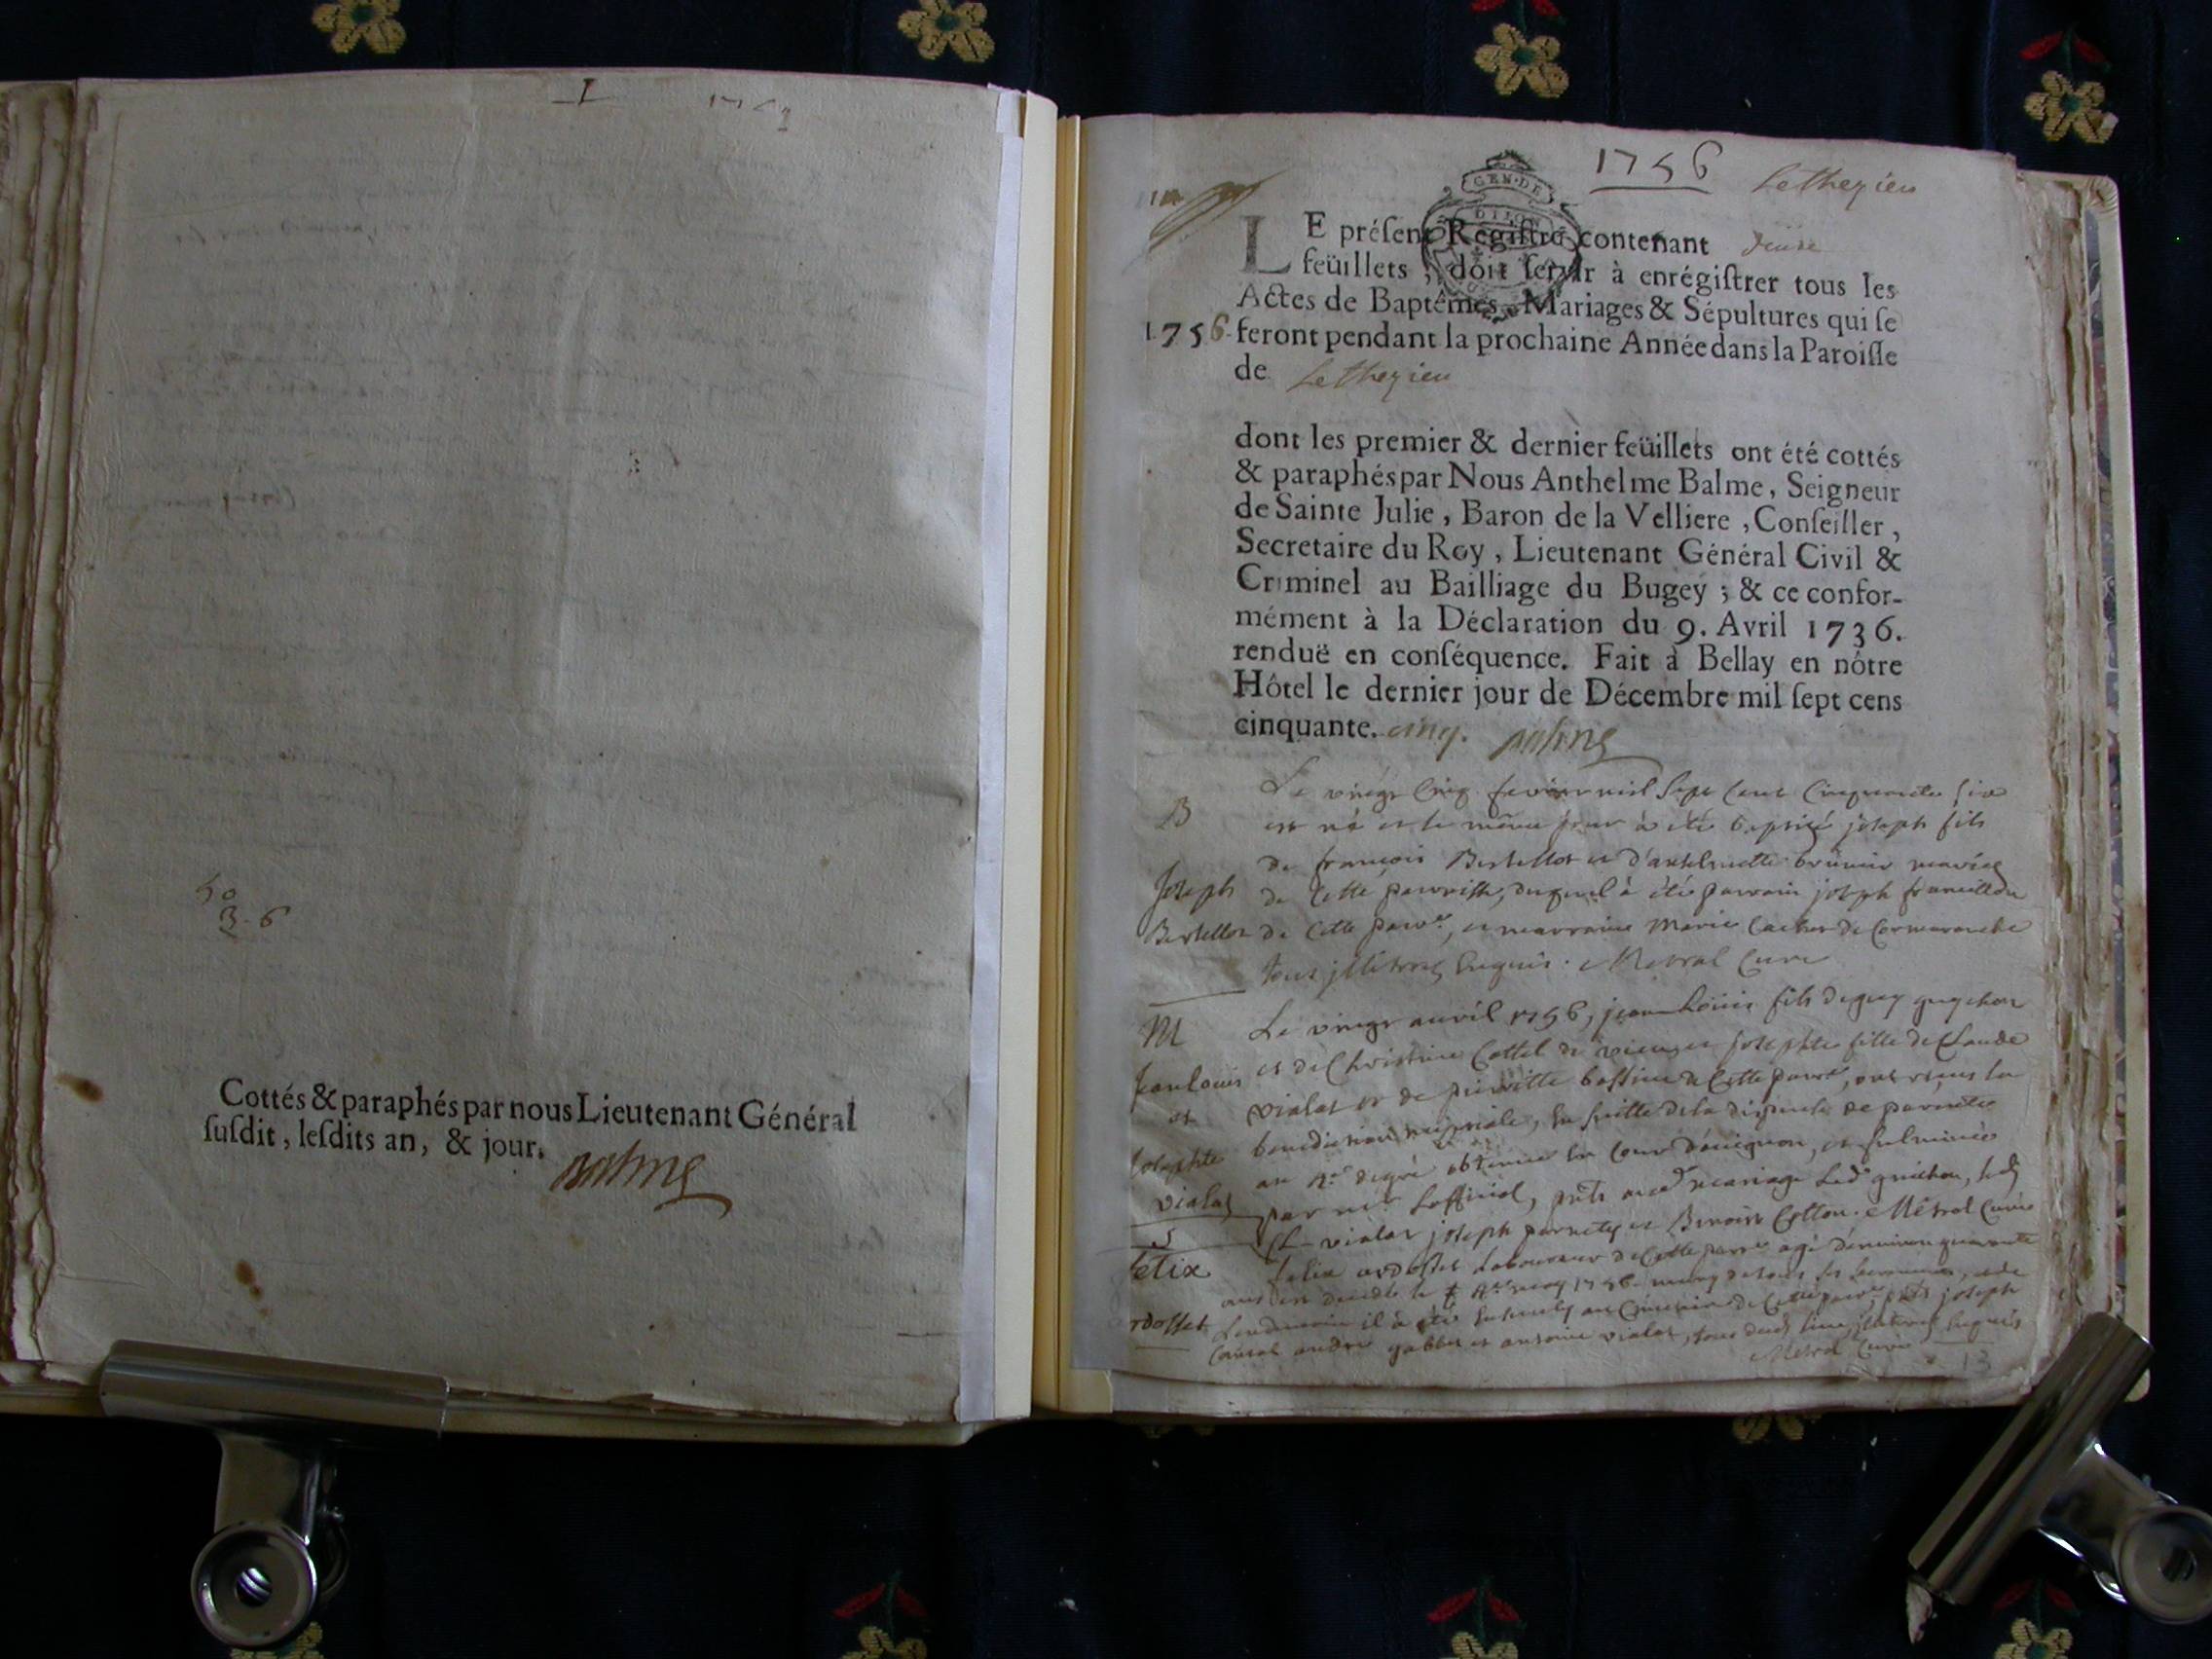 I
50
3-6
Cottés & paraphés par nous Lieutenant Général
ſuſdit, leſdits an, & jour.
balme
1756 Lethezieu
GEN·DE
DIJON
LE préſent Regiſtre contenant
feüillets, doit ſervir à enrégiſtrer tous les
Actes de Baptêmes, Mariages & Sépultures qui ſe
1756 feront pendant la prochaine Année dans la Paroiſſe
de Lethezieu
dont les premier & dernier feüillets ont été cottés
& paraphés par Nous Anthelme Balme, Seigneur
de Sainte Julie, Baron de la Velliere, Conſeiller,
Secretaire du Roy, Lieutenant Général Civil &
Criminel au Bailliage du Bugey ; & ce confor-
mément à la Déclaration du 9. Avril 1736.
renduë en conſéquence. Fait à Bellay en nôtre
Hôtel le dernier jour de Décembre mil ſept cens
cinquante. cinq. balme
Le vingt cinq fevrier mil sept cent cinquante six
B
est né et le même jour à été baptisé joseph fils
de françois Bertellot et d'antelmette brunier mariés
Joseph de cette parroisse, duquel à été parrain joseph
Bertellot de cette parr.e, et marraine Marie de Cormaranche
tous illitérés enquis. Metral Curé
M Le vingt auvil 1756, jean Loüis fils de guy guychon
Jean louis et de Christine Cottel de et josephte fille de Claude
et vialat et de pierrette de cette parr.e, ont reçus la
Josephte benediction nuptiale, en suitte de la dispense de parenté
au 4.e degré obtenue en cour d'avignon, et fulminée
vialat par m.r, nts aud mariage led guichon, led
S vialat joseph et Benoist Cotton. Métral Curé
felix felix ardosset laboureur de cette parr.e agé d'environ quarante
ans est decedé le may 1756 muny de tous les sacremens, et le
rdosset Lendemain il à été au Cimetiere de cette parr.e joseph
andré et antoine vialat, tous illiterés enquis
Metral Curé
13